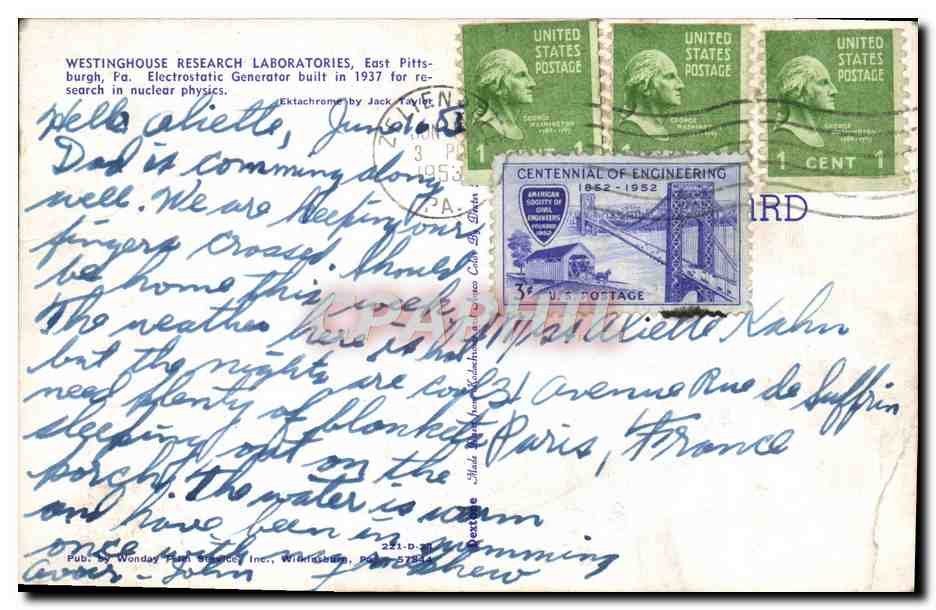 WESTINGHOUSE RESEARCH LABORATORIES, East Pitts-
burgh, Pa. Electrostatic Generator built in 1937 for re-
search in nuclear physics.
Ektachrome by Jack Taylor
Hello Aliette, June 10 53
Dad is comming along
well. We are keeping our
fingers crossed. Should
be home this week.
The weather here is hot
but the nights are cool
need plenty of blankets
sleeping out on the
porch. The water is warm
and have been in swimming
once with
avoir - John
221-D-
Pub. by Wonday Film Service, Inc., Wilkinsburg, Pa. 57844
Dextone Made Direct from Kodachrome and Ansco Color By Dexter
ZELIENO
JUN
3 P
1953
PA.
UNITED
STATES
POSTAGE
GEORGE
WASHINGTON
1789-1797
1 CENT
UNITED
STATES
POSTAGE
GEORGE
WASHINGTON
1
UNITED
STATES
POSTAGE
GEORGE
WASHINGTON
1789-1797
1 CENT 1
CENTENNIAL OF ENGINEERING
1852-1952
AMERICAN
SOCIETY OF
CIVIL
ENGINEERS
FOUNDED
1852
3¢ U.S. POSTAGE
ARD
CPARAMA
Miss Aliette Kahn
31 Avenue Rue de Suffrin
Paris, France